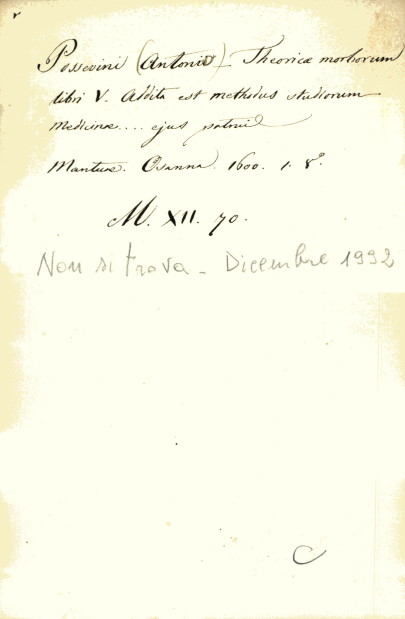 Possevini (Antonio) - Theoricæ morborum
libri V. Addita est methodus studiorum
medicinæ.... ejus patrui
Mantuæ. Osanna. 1600. 1. 8º.
M. XII. 70.
Non si trova - Dicembre 1992
C